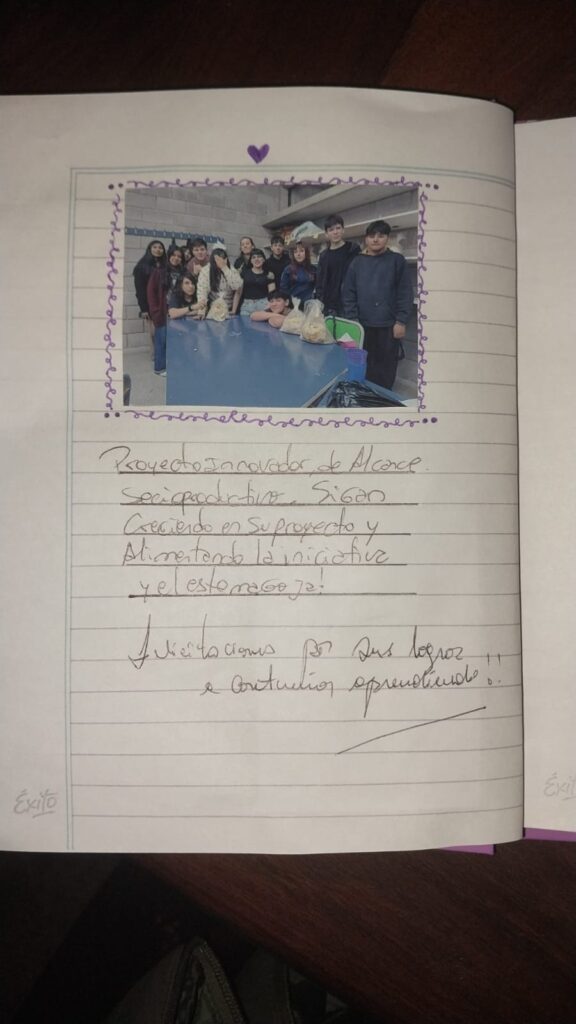 Proyecto Innovador, de Alcance
Socioproductivo. Sigan
Creciendo en Su proyecto y
Alimentando la iniciativa
y el estomago ja!
Felicitaciones por sus logros
a continuar aprendiendo!!
Éxito
Éxi